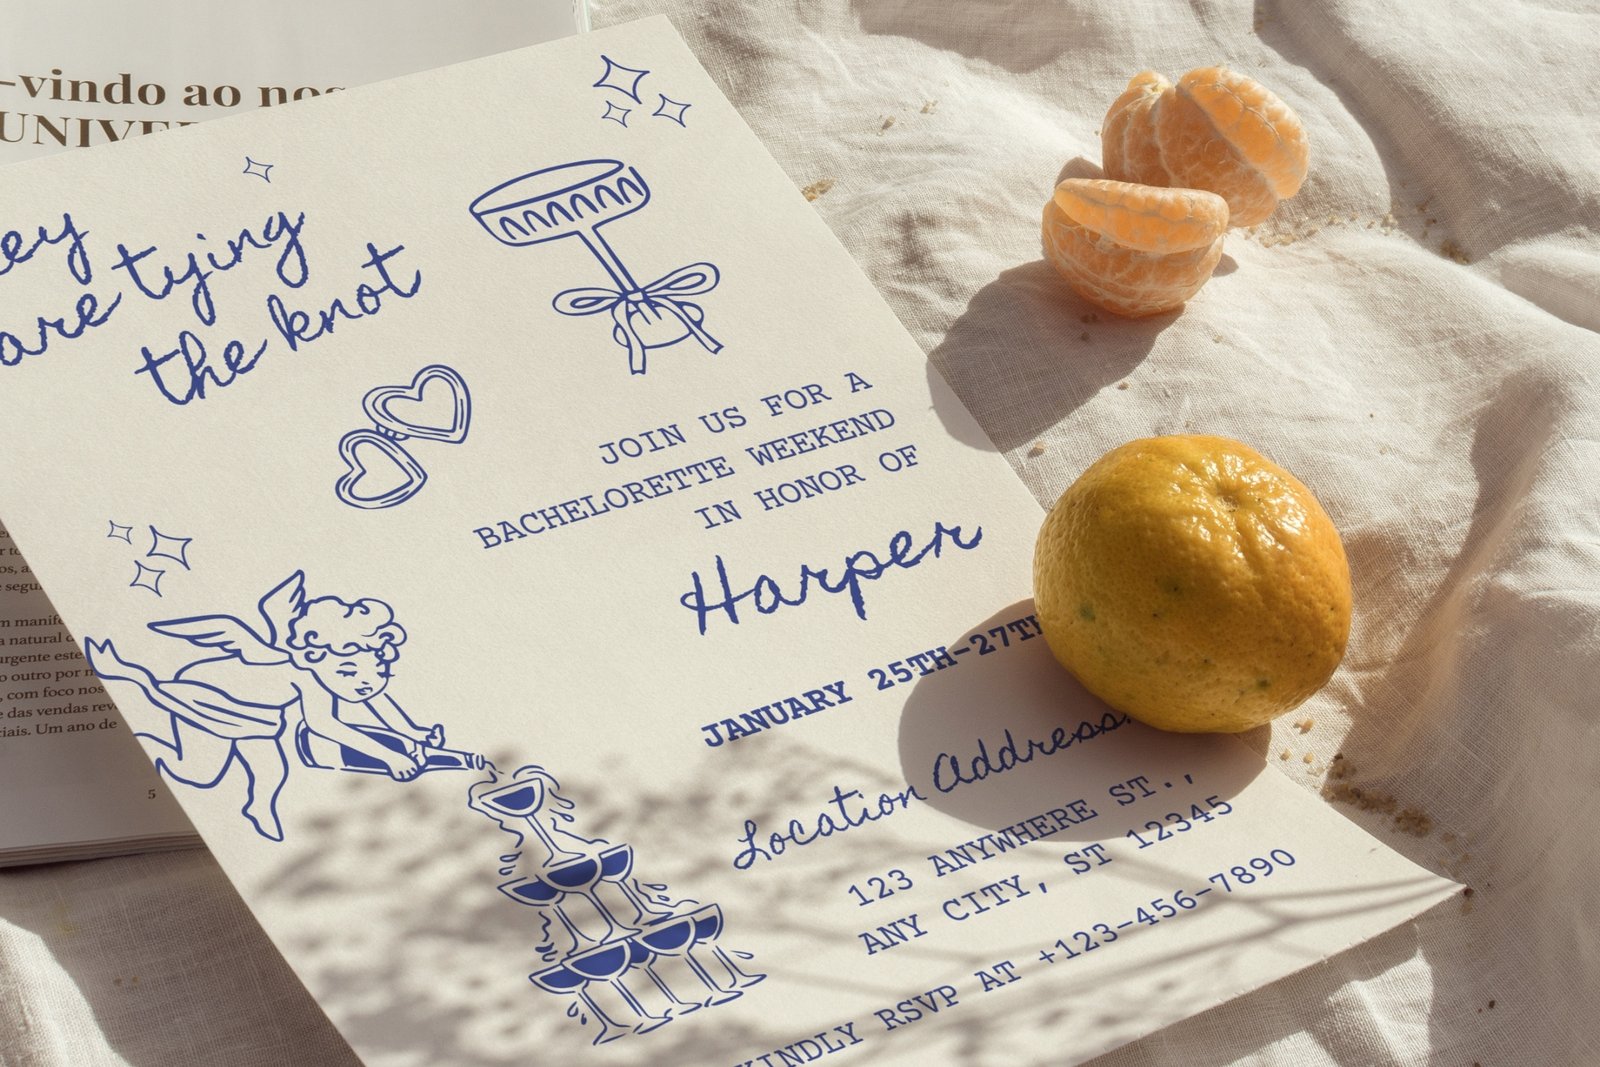 -vindo ao nos
UNIVE
ey
are tying
the knot
JOIN US FOR A
BACHELORETTE WEEKEND
IN HONOR OF
Harper
JANUARY 25TH-27TH
Location Address:
123 ANYWHERE ST.,
ANY CITY, ST 12345
KINDLY RSVP AT +123-456-7890
m manife
a natural
urgente este
o outro por
, com foco nos
e das vendas rev
iais. Um ano de
5